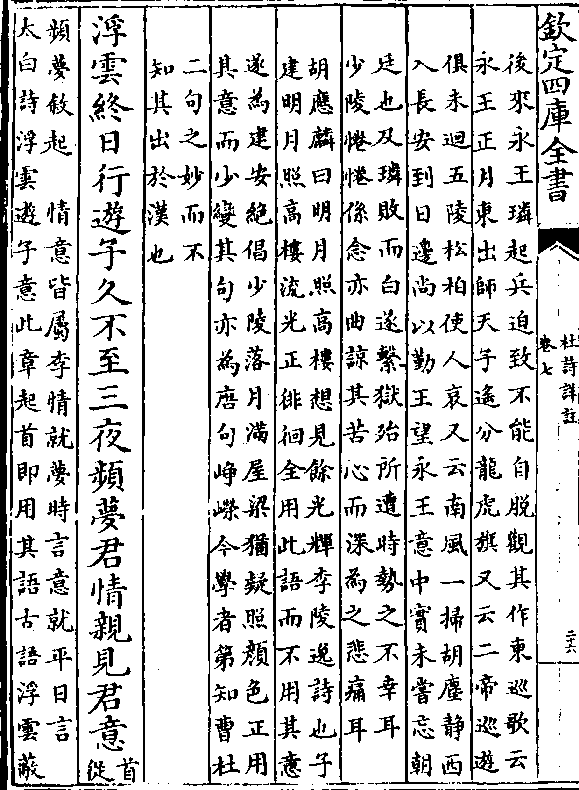 欽定四庫全書
杜詩詳註
卷七
二十六
後來永王璘起兵迫致不能自脱觀其作東巡歌云
永王正月東出師天子遙分龍虎旗又云二帝巡遊
俱未迴五陵松柏使人哀又云南風一掃胡塵静西
入長安到日邊尚以勤王望永王意中實未嘗忘朝
廷也及璘敗而白遂繫獄殆所遭時勢之不幸耳
少陵惓惓係念亦曲諒其苦心而深為之悲痛耳
胡應麟曰明月照高樓想見餘光輝李陵逸詩也子
建明月照高樓流光正徘徊全用此語而不用其意
遂為建安絶倡少陵落月滿屋梁猶疑照顔色正用
其意而少變其句亦為唐句峥嶸今學者第知曹杜
二句之妙而不
知其出於漢也
浮雲終日行遊子久不至三夜頻夢君情親見君意首從
頻夢敘起　情意皆屬李情就夢時言意就平日言
太白詩浮雲遊子意此章起首即用其語古語浮雲蔽